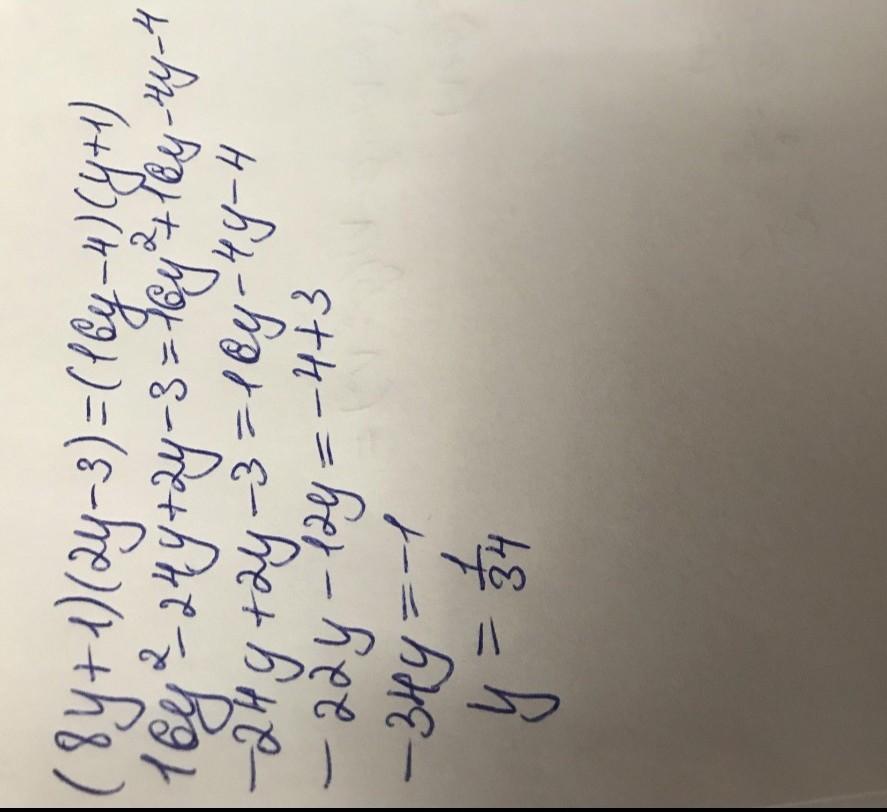 (8y+1)(2y-3)=(16y-4)(y+1)
16y²-24y+2y-3=16y²+16y-4y-4
-24y+2y-3=16y-4y-4
-22y-12y=-4+3
-34y=-1
y=1/34